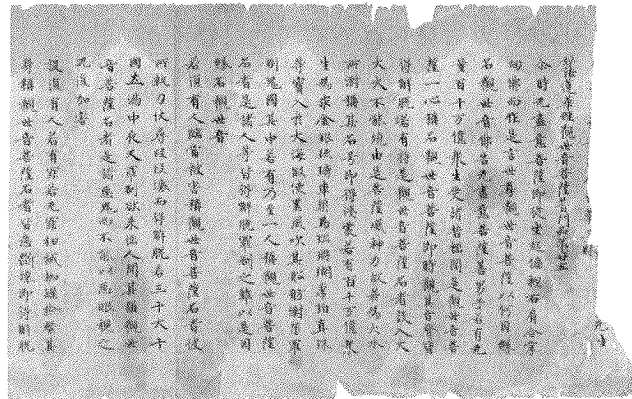 妙法蓮華經觀世音菩薩普門品第廿五
尒時无盡意菩薩即從座起偏袒右肩合掌
向佛而作是言世尊觀世音菩薩以何因緣
名觀世音佛告无盡意菩薩善男子若有无
量百千万億衆生受諸苦惱聞是觀世音菩
薩一心稱名觀世音菩薩即時觀其音聲皆
得解脫若有持是觀世音菩薩名者設入大
火火不能燒由是菩薩威神力故若爲大水
所漂稱其名号即得淺處若有百千万億衆
生爲求金銀琉璃車𤦲馬瑙珊瑚虎珀真珠
等寶入於大海假使黑風吹其舩舫漂墮羅
刹鬼國其中若有乃至一人稱觀世音菩薩
名者是諸人等皆得解脫羅刹之難以是因
緣名觀世音
若復有人臨當被害稱觀世音菩薩名者彼
所執刀仗尋段段壞而得解脫若三千大千
國土滿中夜叉羅刹欲來惱人聞其稱觀世
音菩薩名者是諸惡鬼尚不能以惡眼視之
況復加害
設復有人若有罪若无罪杻械枷鎖檢繫其
身稱觀世音菩薩名者皆悉斷壞即得解脫